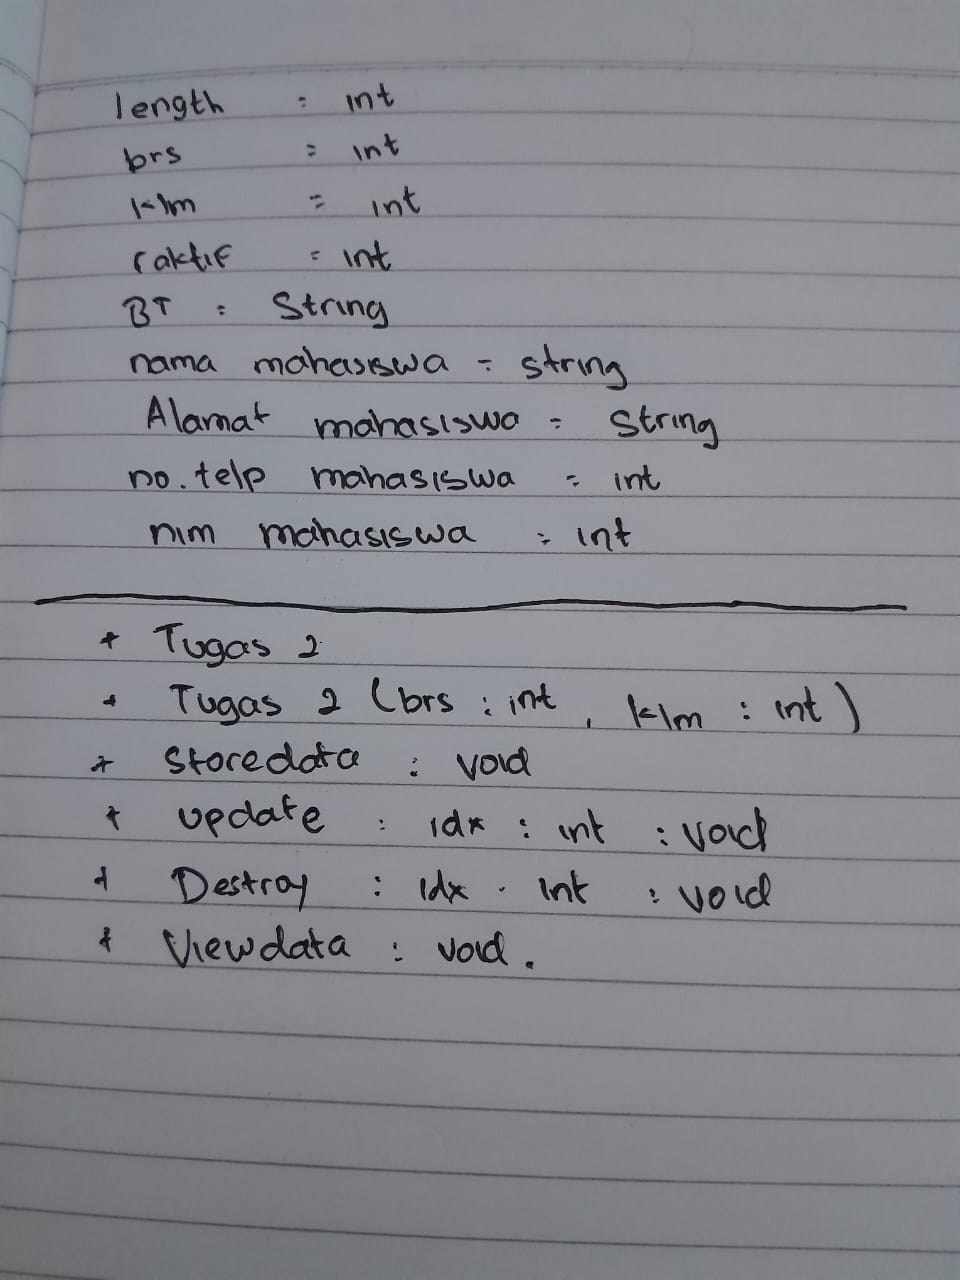 length : int
brs : int
klm : int
raktif : int
BT : String
nama mahasiswa : string
Alamat mahasiswa : String
no. telp mahasiswa : int
nim mahasiswa : int
+ Tugas 2
+ Tugas 2 (brs : int, klm : int)
+ Storedata : void
+ update : idx : int : void
+ Destroy : idx . int : void
+ Viewdata : void.